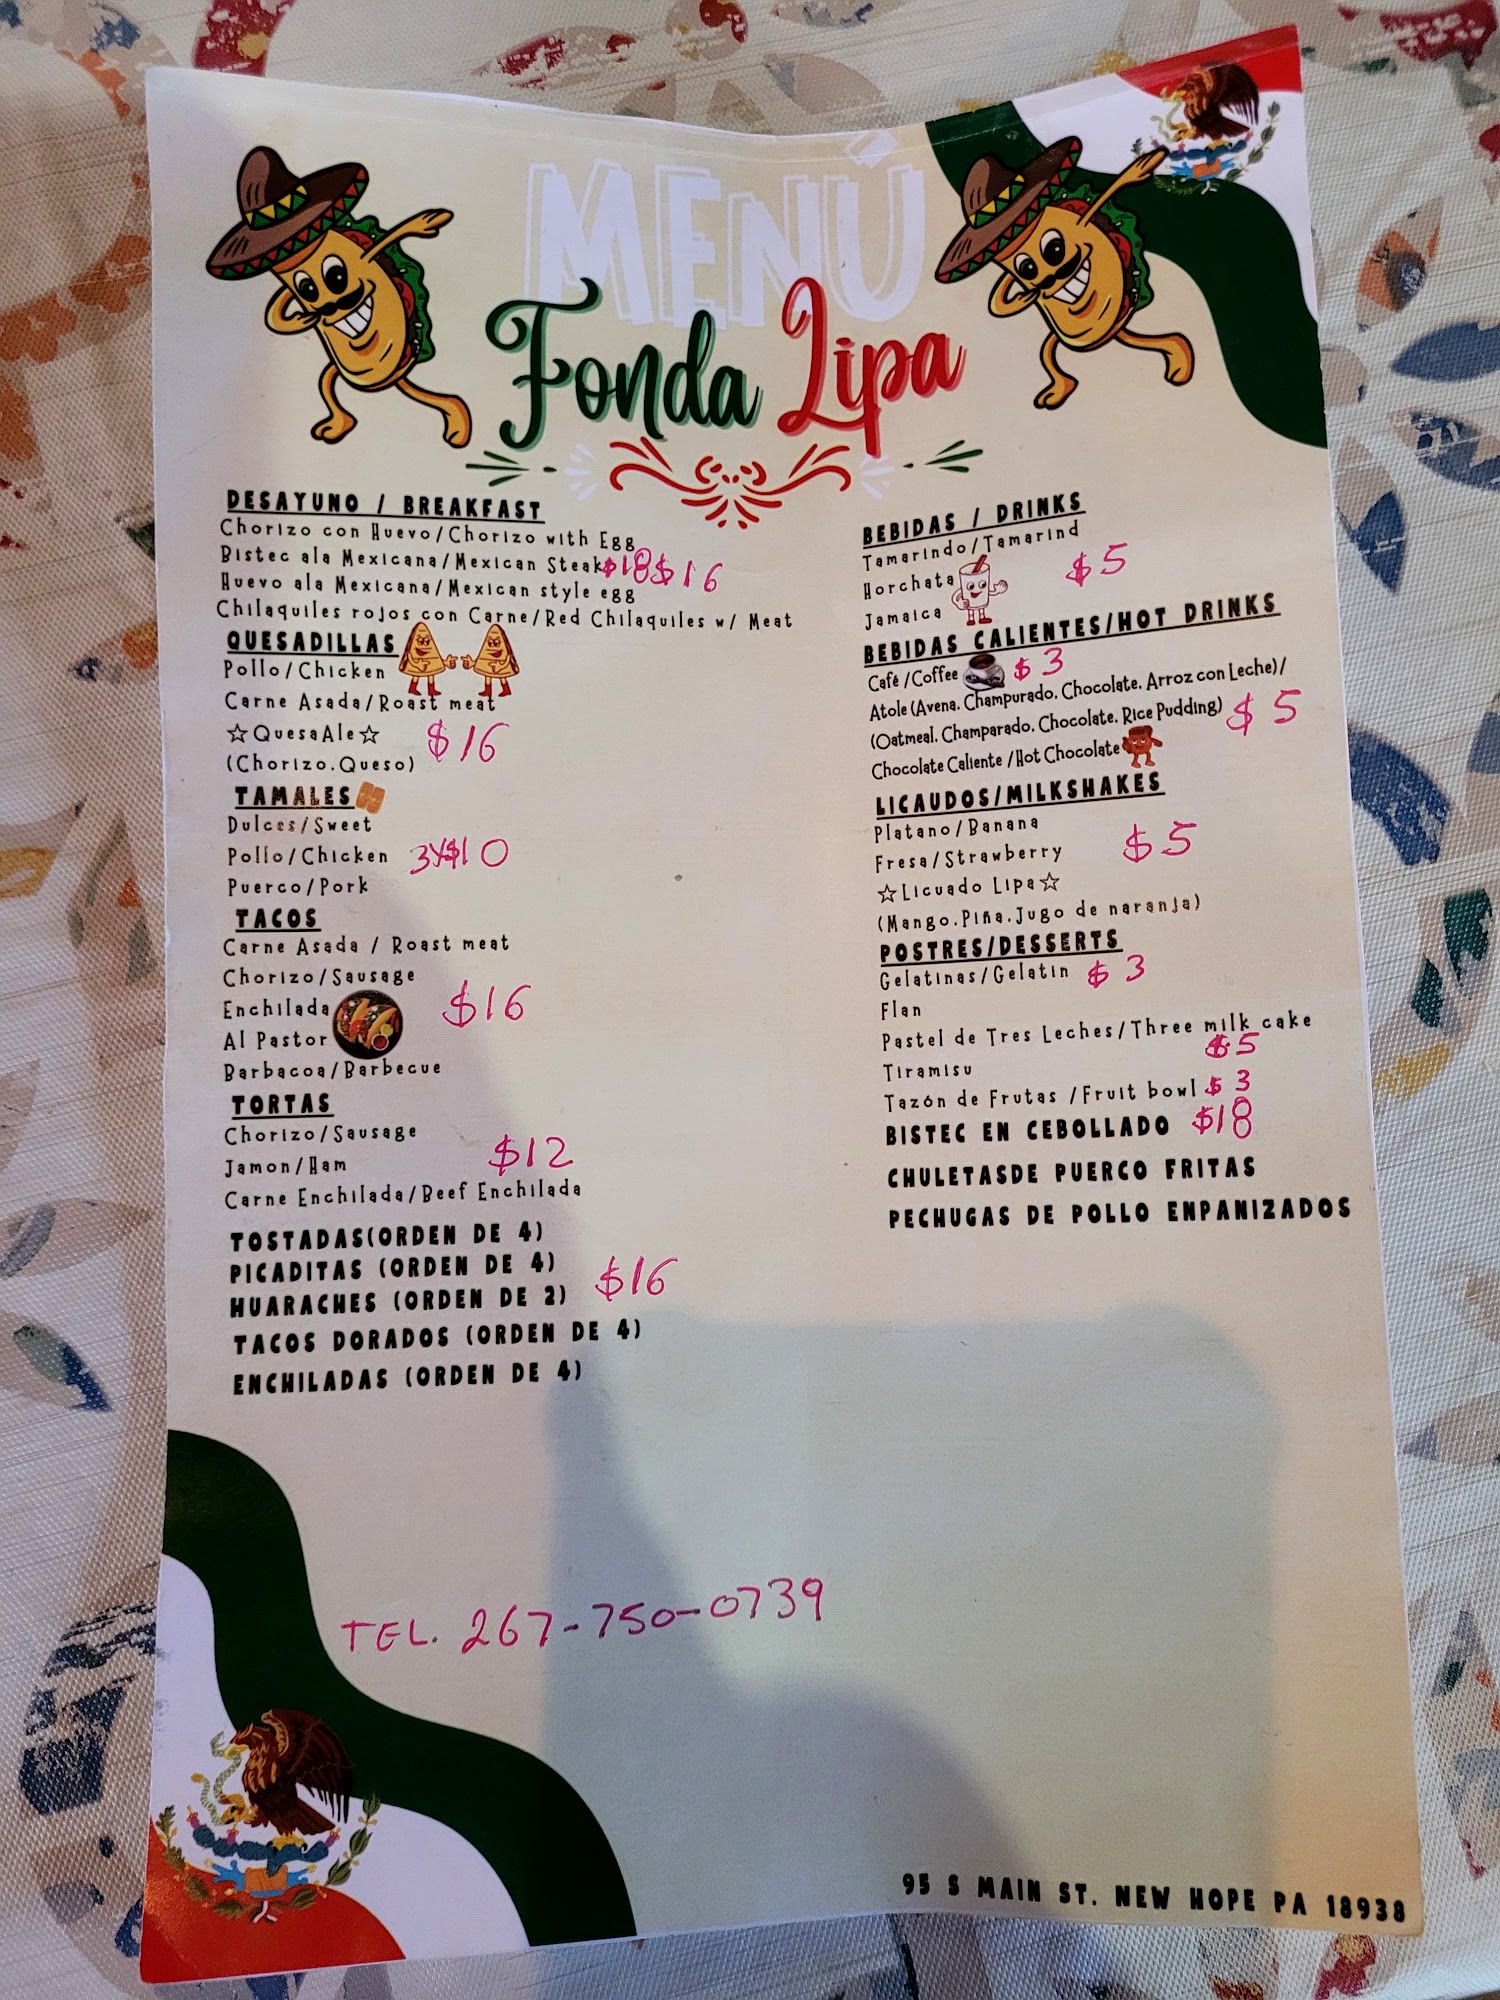 MENÚ
Fonda Lipa
DESAYUNO / BREAKFAST
Chorizo con Huevo/Chorizo with Egg
Bistec ala Mexicana/Mexican Steak $18 $16
Huevo ala Mexicana/Mexican style egg
Chilaquiles rojos con Carne/Red Chilaquiles w/ Meat
QUESADILLAS
Pollo/Chicken
Carne Asada/Roast meat
☆QuesaAle☆ $16
(Chorizo.Queso)
TAMALES
Dulces/Sweet
Pollo/Chicken 3X$10
Puerco/Pork
TACOS
Carne Asada / Roast meat
Chorizo/Sausage
Enchilada $16
Al Pastor
Barbacoa/Barbecue
TORTAS
Chorizo/Sausage
Jamon/Ham $12
Carne Enchilada/Beef Enchilada
TOSTADAS(ORDEN DE 4)
PICADITAS (ORDEN DE 4)
HUARACHES (ORDEN DE 2) $16
TACOS DORADOS (ORDEN DE 4)
ENCHILADAS (ORDEN DE 4)
BEBIDAS / DRINKS
Tamarindo/Tamarind
Horchata $5
Jamaica
BEBIDAS CALIENTES/HOT DRINKS
Café /Coffee $3
Atole (Avena. Champurado. Chocolate. Arroz con Leche)/
(Oatmeal. Champarado. Chocolate. Rice Pudding) $5
Chocolate Caliente /Hot Chocolate
LICAUDOS/MILKSHAKES
Platano/Banana
Fresa/Strawberry $5
☆Licuado Lipa☆
(Mango.Piña.Jugo de naranja)
POSTRES/DESSERTS
Gelatinas/Gelatin $3
Flan
Pastel de Tres Leches/Three milk cake
$5
Tiramisu
Tazón de Frutas /Fruit bowl $3
BISTEC EN CEBOLLADO $18
CHULETASDE PUERCO FRITAS
PECHUGAS DE POLLO ENPANIZADOS
TEL. 267-750-0739
95 S MAIN ST. NEW HOPE PA 18938